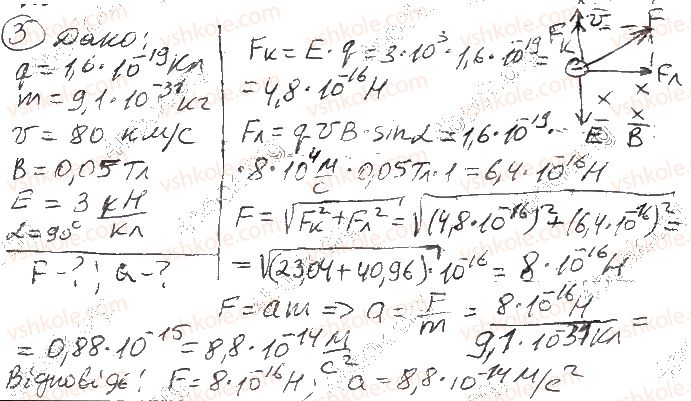 ③ Дано:
q = 1,6·10⁻¹⁹ Кл
m = 9,1·10⁻³¹ кг
v = 80 км/с
B = 0,05 Тл
E = 3 кН/Кл
α = 90°
F - ?; a - ?
Fк = E·q = 3·10³·1,6·10⁻¹⁹ =
= 4,8·10⁻¹⁶ Н
Fл = qvB·sinα = 1,6·10⁻¹⁹·
·8·10⁴ м/с·0,05 Тл·1 = 6,4·10⁻¹⁶ Н
F = √(Fк² + Fл²) = √((4,8·10⁻¹⁶)² + (6,4·10⁻¹⁶)²) =
= √(23,04 + 40,96)·10⁻¹⁶ = 8·10⁻¹⁶ Н
F = am => a = F/m = 8·10⁻¹⁶ Н / 9,1·10⁻³¹ Кл =
= 0,88·10⁻¹⁵ = 8,8·10⁻¹⁴ м/с²
Відповідь: F = 8·10⁻¹⁶ Н; a = 8,8·10⁻¹⁴ м/с²
Fк v F
Fл
x x
E x B
vshkole.com